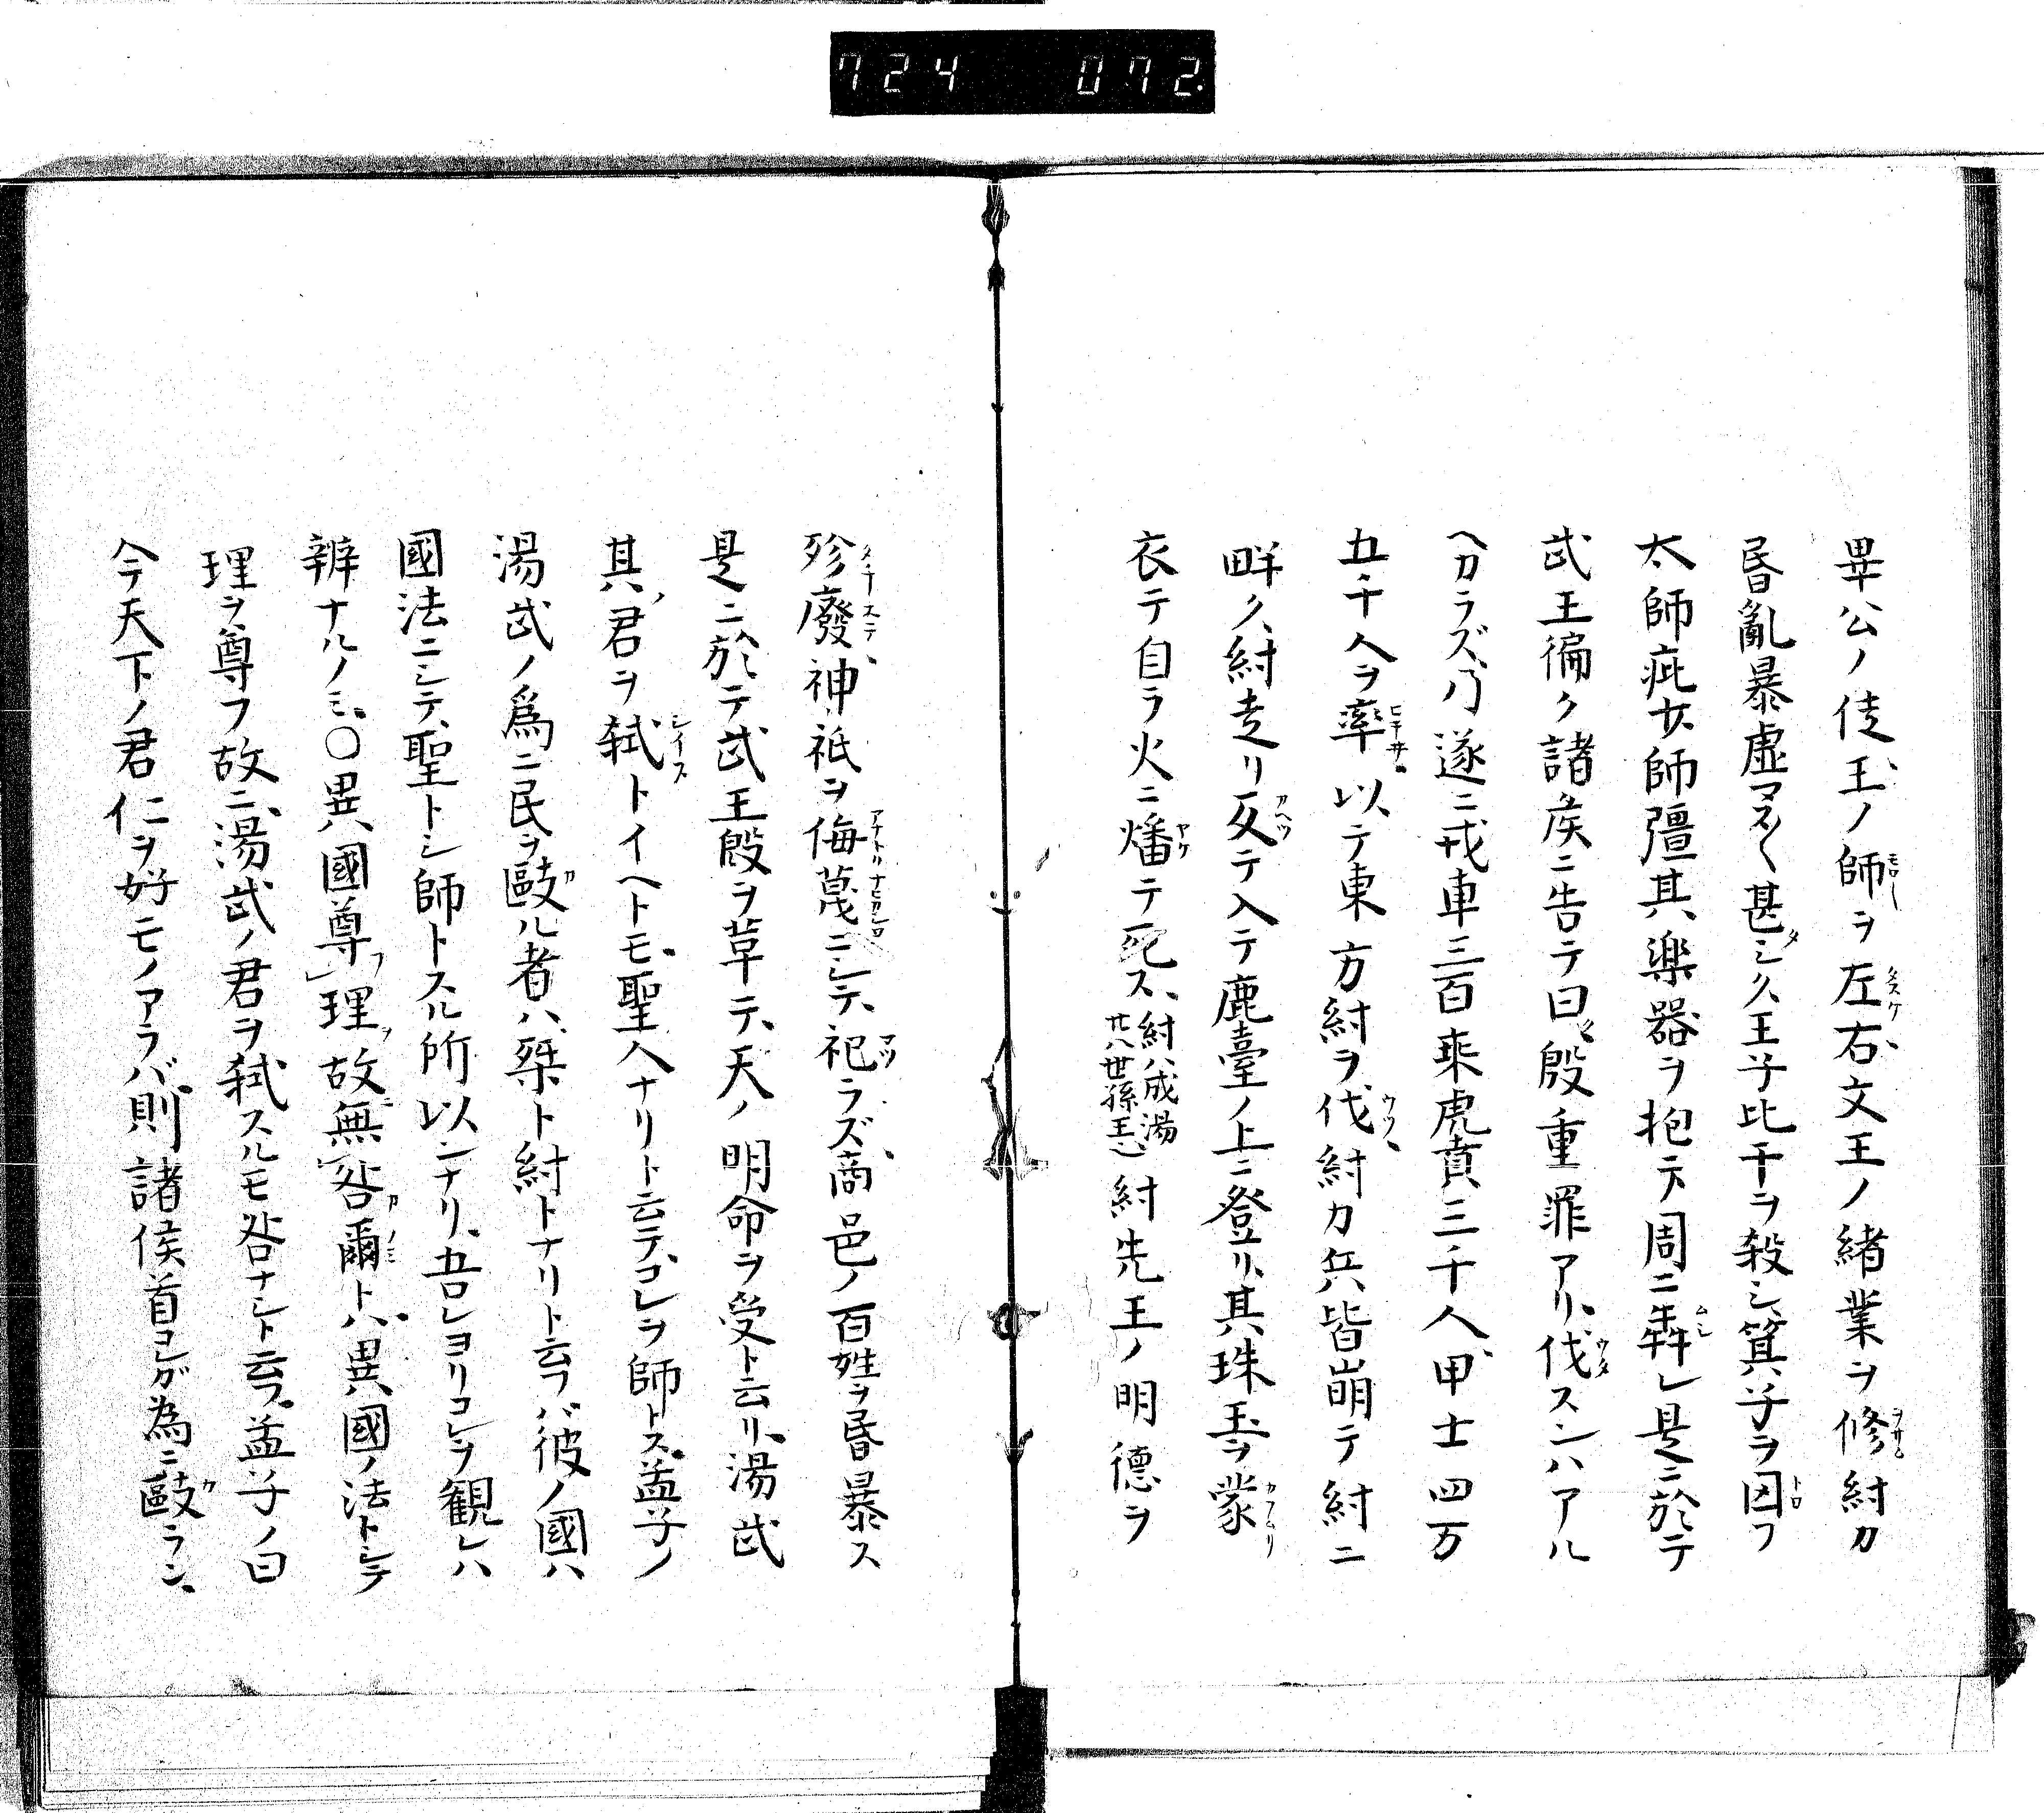 724 072.
畢公ノ徒王ノ師ヲ左右文王ノ緒業ヲ修紂カ
昏亂暴虚マス〱甚シ久王子比干ヲ殺シ箕子ヲ囚フ
太師疵少師彊其楽器ヲ抱テ周ニ犇レ是ニ於テ
武王徧ク諸矦ニ告テ曰ク殷重罪アリ、伐スンハアル
ヘカラズ、乃遂ニ戎車三百乗虎賁三千人、甲士四万
五千人ヲ率以テ東方紂ヲ伐紂カ兵皆崩テ紂ニ
畔ク紂走リ反テ入テ鹿臺ノ上ニ登リ其珠玉ヲ蒙
衣テ自ラ火ニ燔テ死ス、紂ハ成湯廿八世孫王紂先王ノ明德ヲ
殄廢神祇ヲ侮蔑ニシテ、祀ラズ、商邑ノ百姓ヲ昏暴ス
是ニ於テ武王殷ヲ革テ、天ノ明命ヲ受ト云リ、湯武
其君ヲ弑トイヘトモ聖人ナリト云テコレヲ師トス孟子ノ
湯武ノ爲ニ民ヲ敺ル者ハ桀ト紂トナリト云フハ彼ノ國ハ
國法ニシテ、聖トシ師トスル所以ンナリ、吾レヨリコレヲ観レハ
辨ナルノミ〇異國尊理故無咎爾トハ異國ノ法トシテ
理ヲ尊フ故ニ湯武ノ君ヲ弑スルモ咎ナシト云フ孟子ノ曰
今天下ノ君仁ヲ好モノアラバ則諸侯首コレガ為ニ敺ラン、